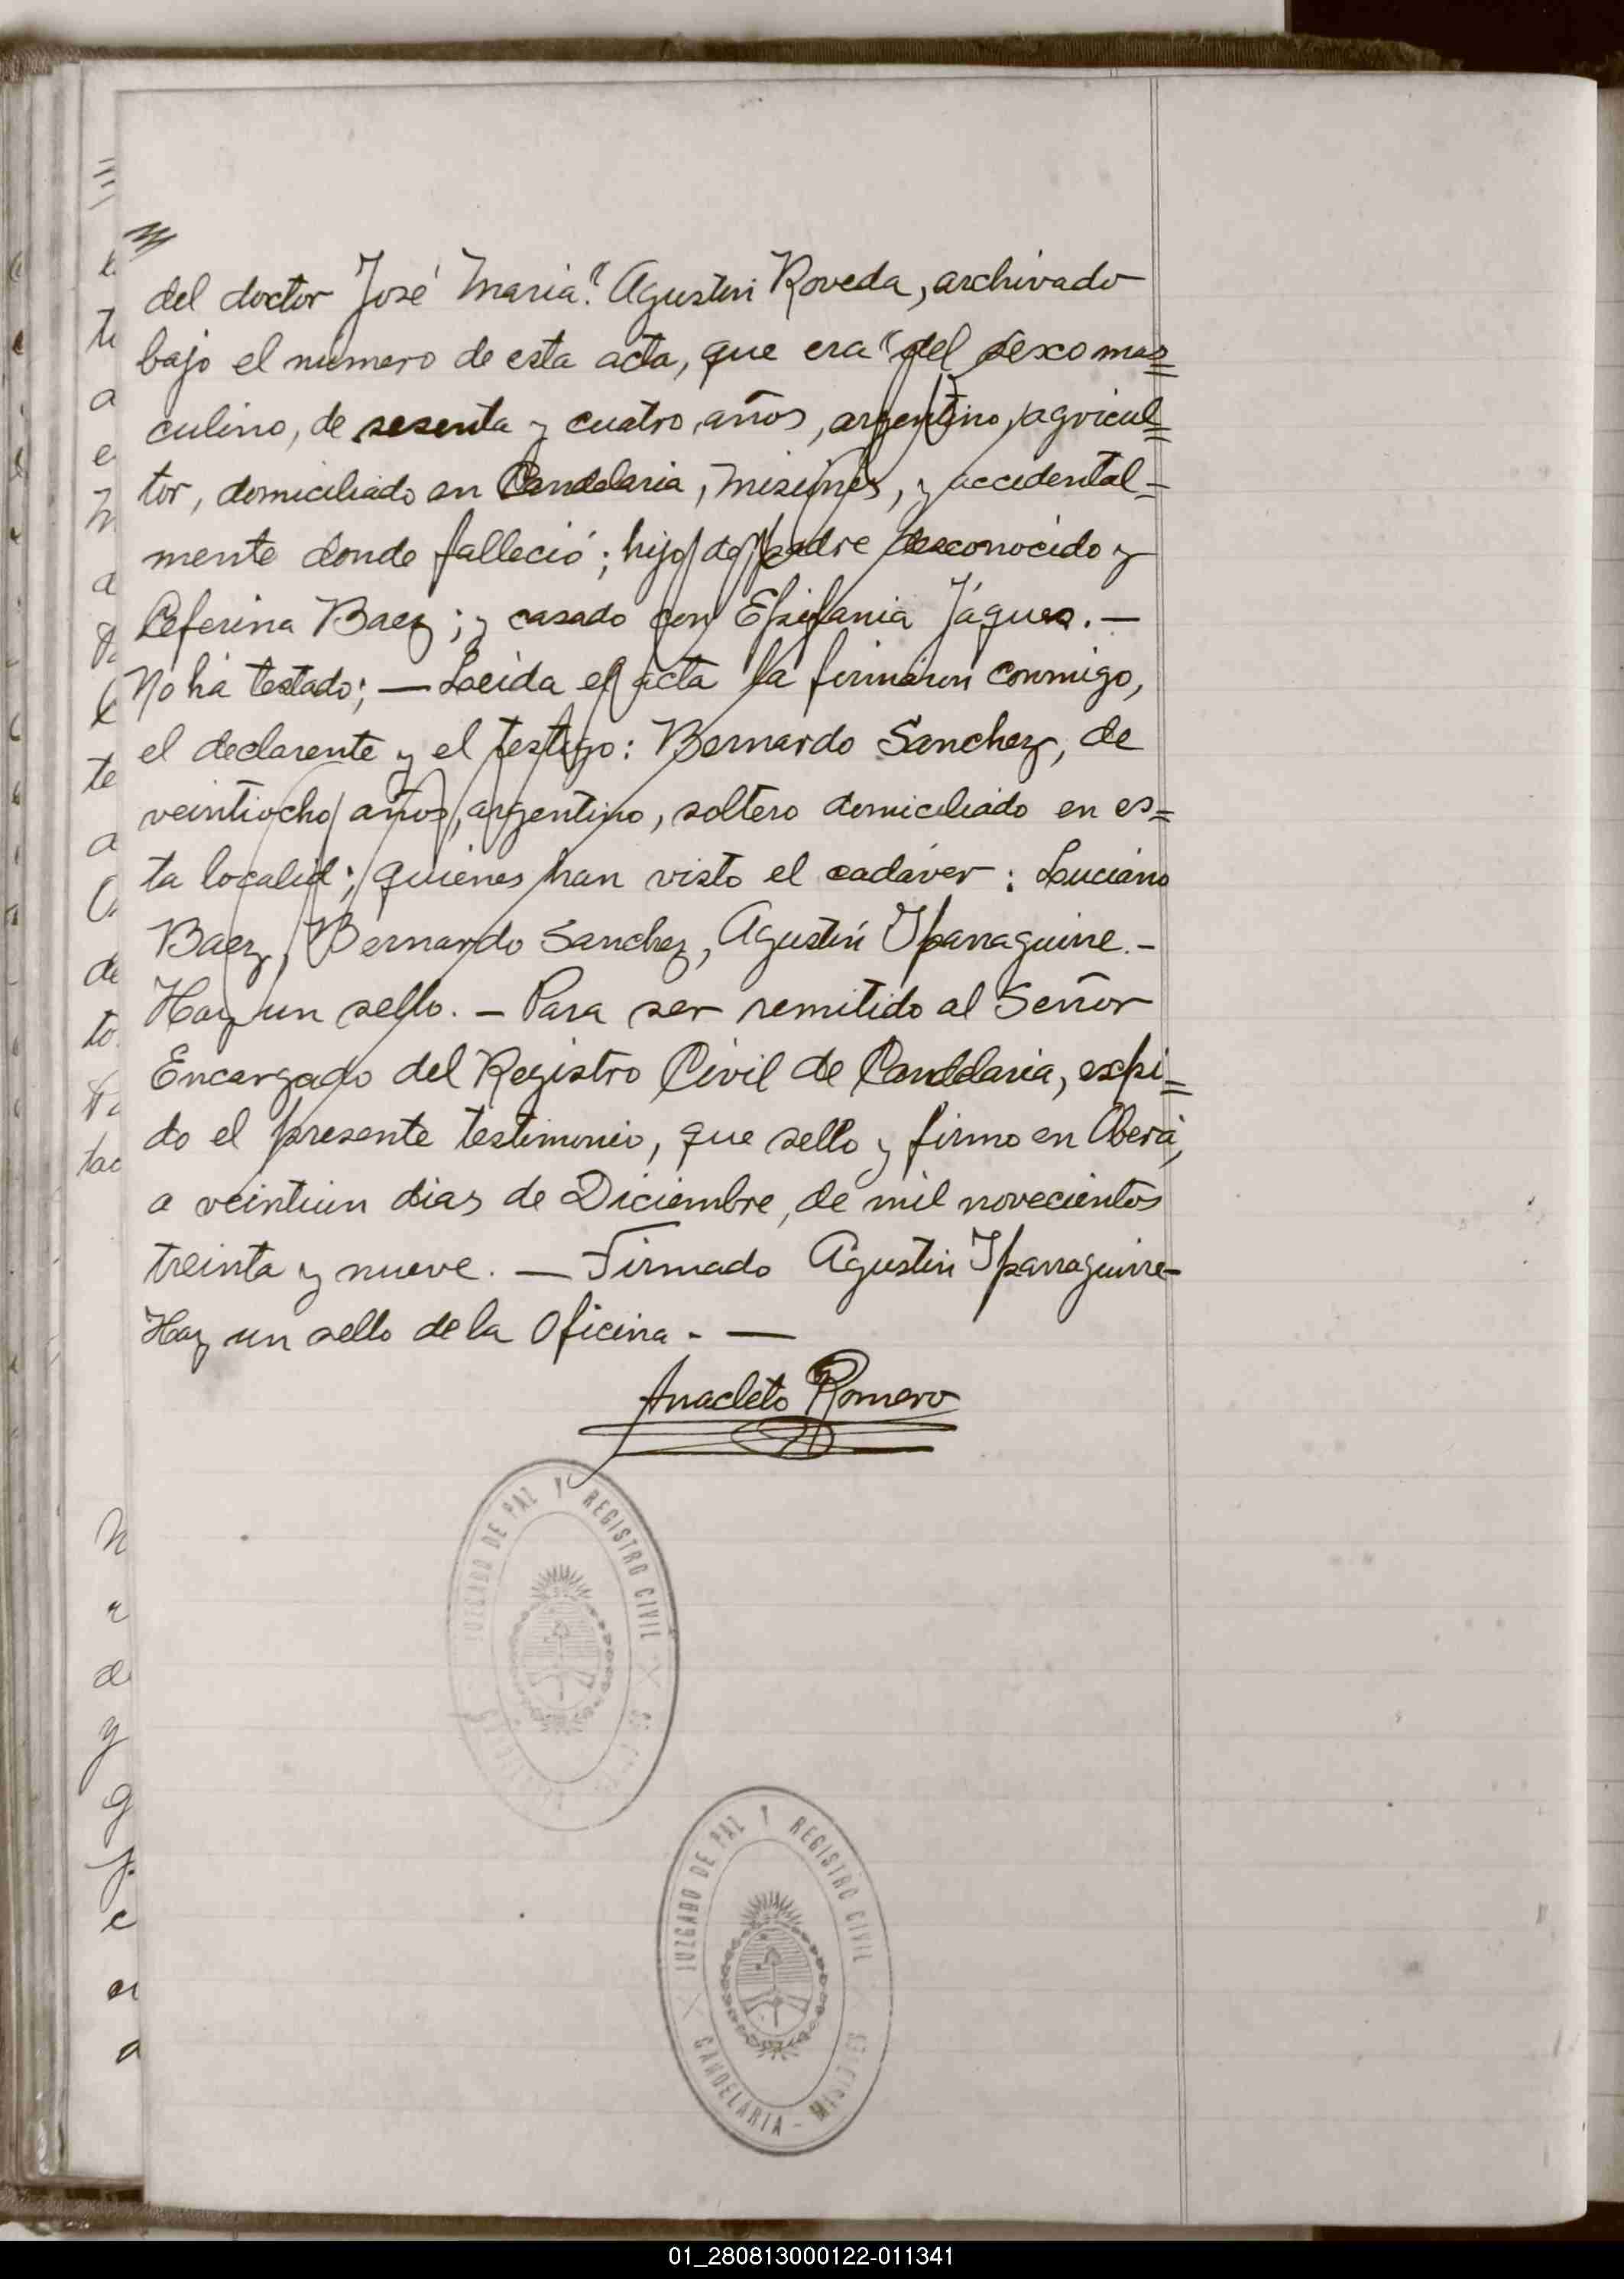 del doctor José Maria Agustin Roveda, archivado
bajo el número de esta acta, que era del sexo mas=
culino, de sesenta y cuatro años, argentino, agricul=
tor, domiciliado en Candelaria, Misiones, y accidental=
mente donde falleció; hijo de padre desconocido y
Ceferina Baez; y casado con Epifania Jáques. —
No há testado; — Leida el acta la firmaron conmigo,
el declarente y el testigo: Bernardo Sanchez, de
veintiocho años, argentino, soltero domiciliado en es=
ta localid; quienes han visto el cadáver: Luciano
Baez, Bernardo Sanchez, Agustín Yparraguirre. -
Hay un sello. — Para ser remitido al Señor
Encargado del Registro Civil de Candelaria, expi=
do el presente testimonio, que sello y firmo en Oberá,
a veintiún dias de Diciembre, de mil novecientos
treinta y nueve. — Firmado Agustin Yparraguirre -
Hay un sello de la Oficina. - —
Anacleto Romero
JUZGADO DE PAZ Y REGISTRO CIVIL
JUZGADO DE PAZ Y REGISTRO CIVIL
CANDELARIA - MISIONES
01_280813000122-011341